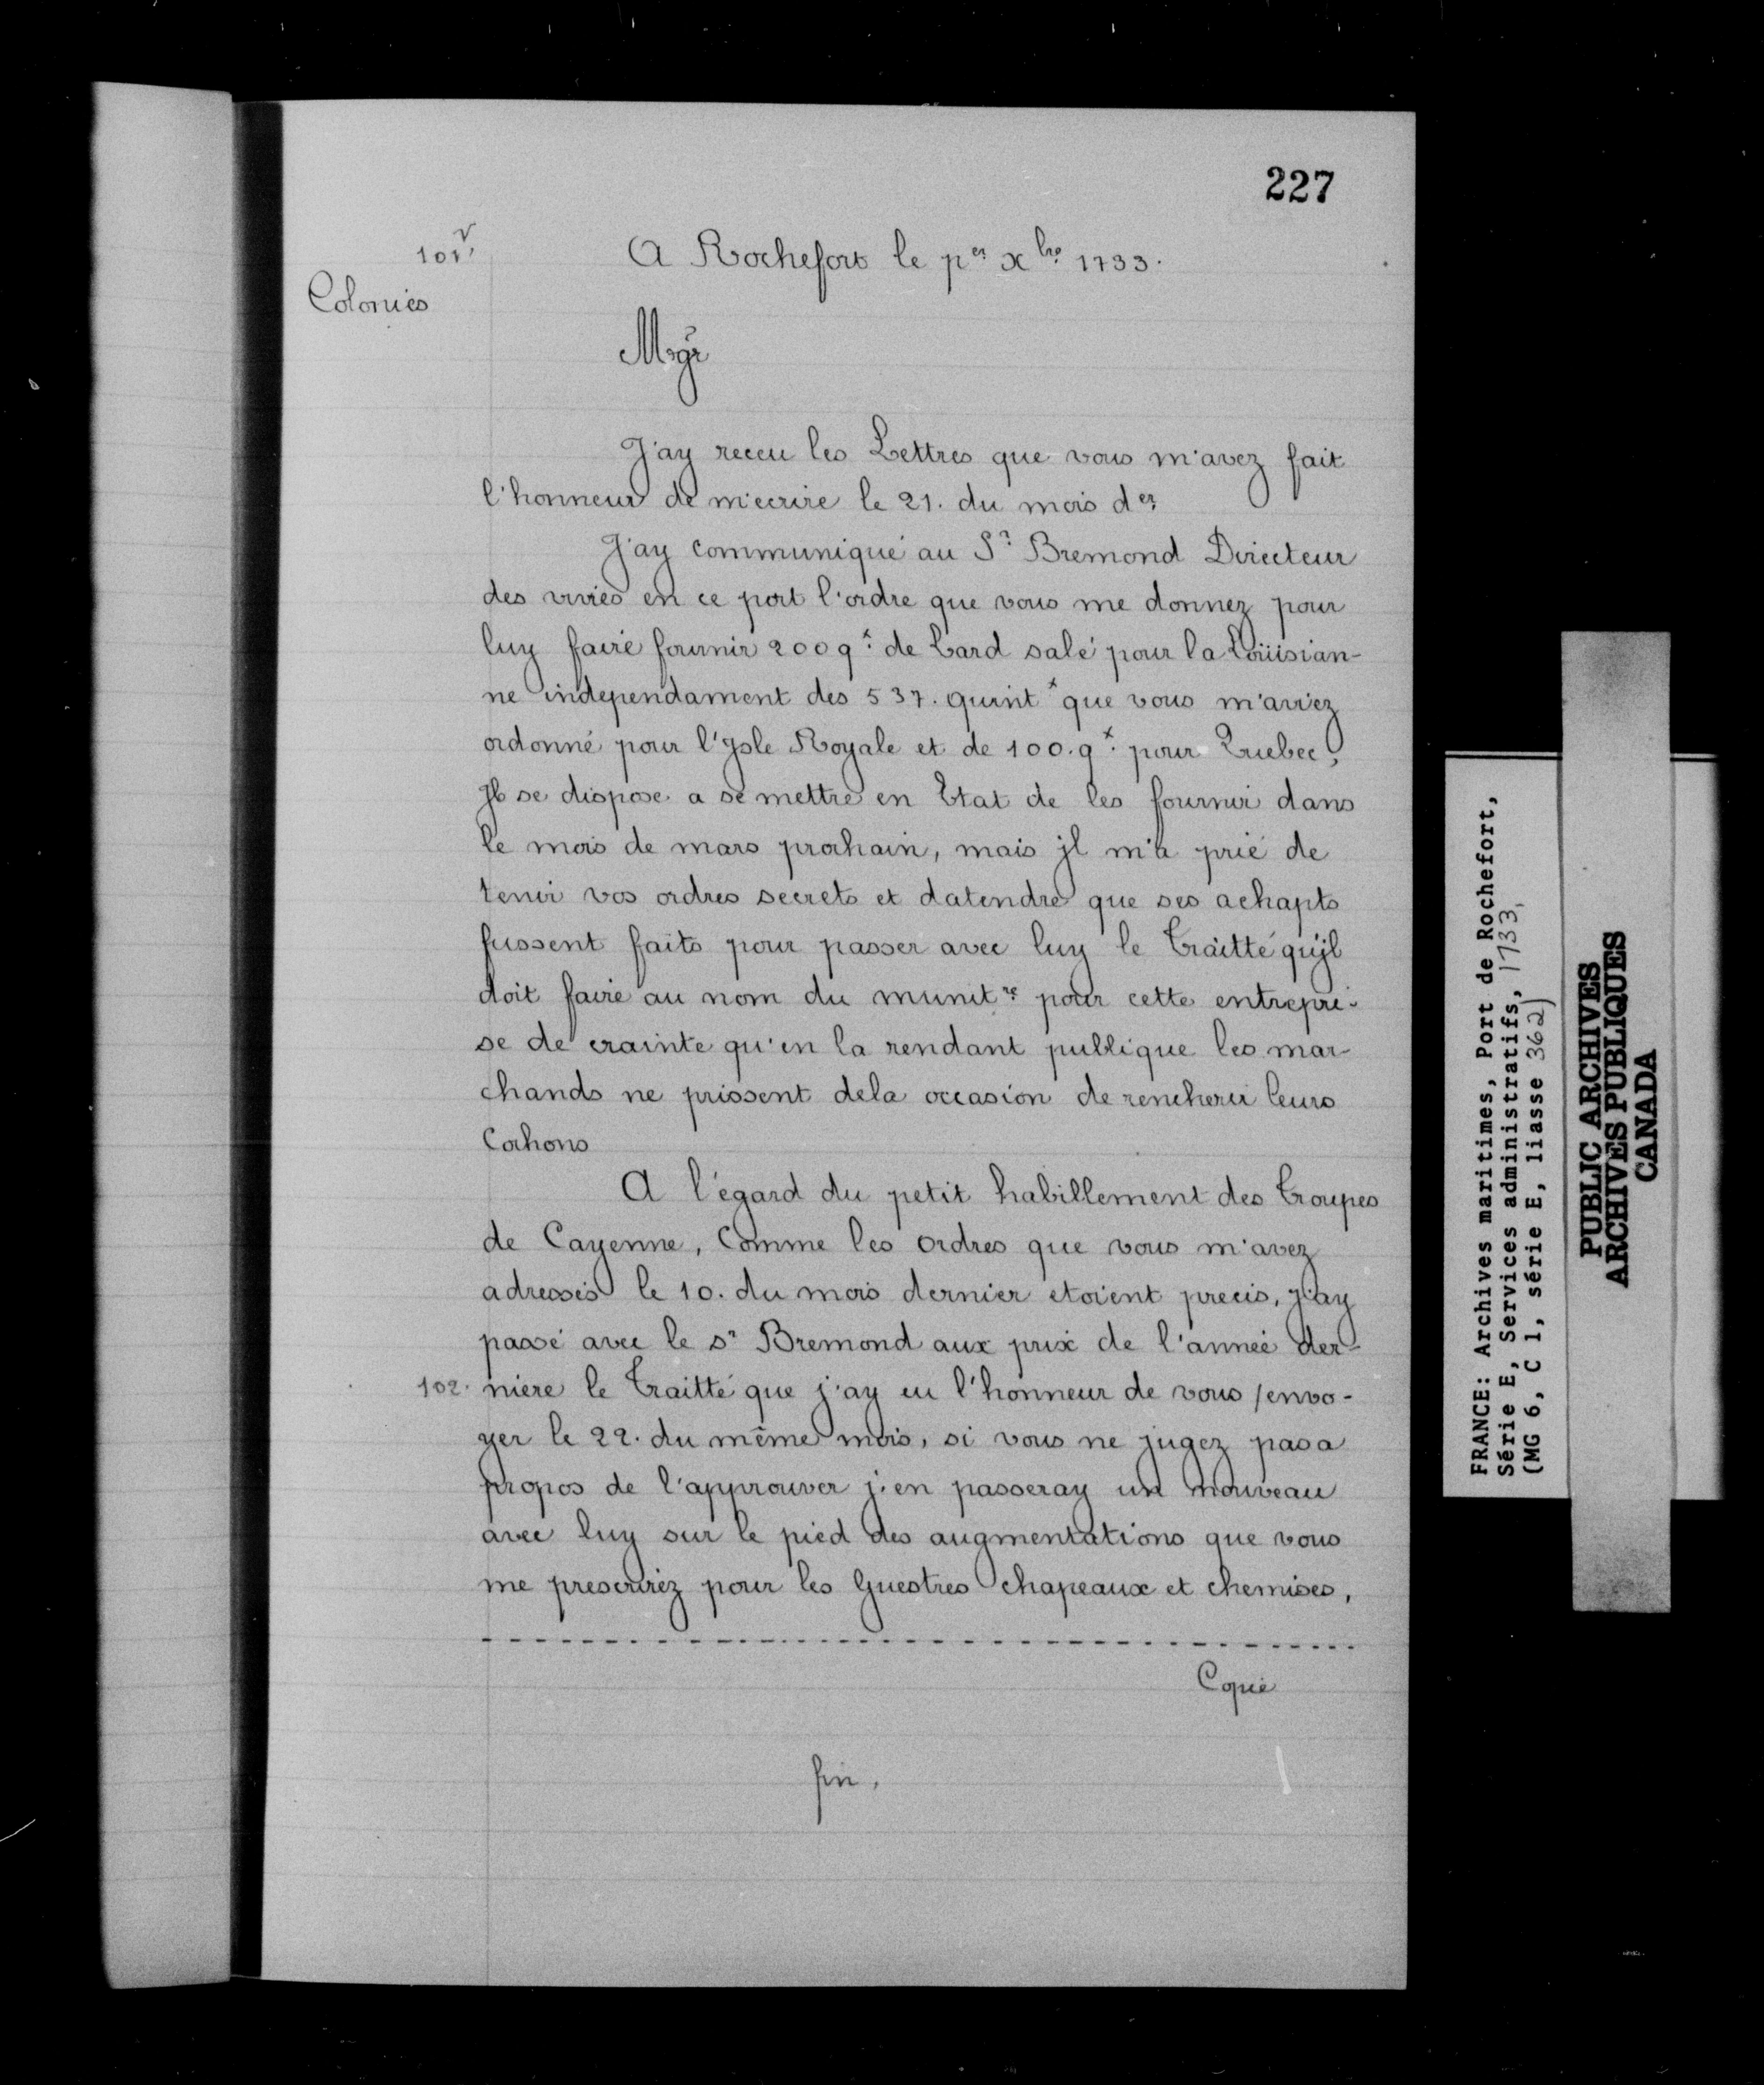 227
101v.
A Rochefort le per xbre 1733.
Colonies
Mgr
J'ay receu les Lettres que vous m'avez fait
l'honneur de m'ecrire le 21. du mois der
J'ay communiqué au Sr Bremond Directeur
des vivres en ce port l'ordre que vous me donnez pour
luy faire fournir 200 qx de Lard salé pour la Loüisian-
ne independament des 537. quintx que vous m'aviez
ordonné pour l'Jsle Royale et de 100. qx pour Quebec,
Jl se dispose a se mettre en Etat de les fournir dans
le mois de mars prochain, mais jl m'a prié de
tenir vos ordres secrets et datendre que ses achapts
fussent faits pour passer avec luy le Traitté qu'jl
doit faire au nom du munitre pour cette entrepri-
se de crainte qu'en la rendant publique les mar-
chands ne prissent dela occasion de rencherir leurs
Cochons
A l'égard du petit habillement des Troupes
de Cayenne, Comme les ordres que vous m'avez
adressés le 10. du mois dernier etoient precis, j'ay
passé avec le sr Bremond aux prix de l'année der-
102. niere le Traitté que j'ay eu l'honneur de vous /envo-
yer le 22. du même mois, si vous ne jugez pas a
propos de l'approuver j'en passeray un nouveau
avec luy sur le pied des augmentations que vous
me prescrirez pour les Guestres chapeaux et chemises,
Copie
fin,
FRANCE: Archives maritimes, Port de Rochefort,
Série E, Services administratifs, 1733,
(MG 6, C 1, série E, liasse 362)
PUBLIC ARCHIVES
ARCHIVES PUBLIQUES
CANADA